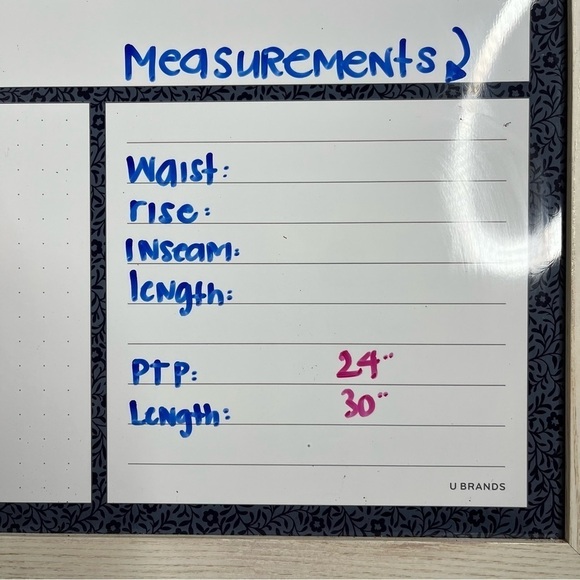 Measurements
Waist:
rise:
Inseam:
length:
PTP: 24"
Length: 30"
U BRANDS